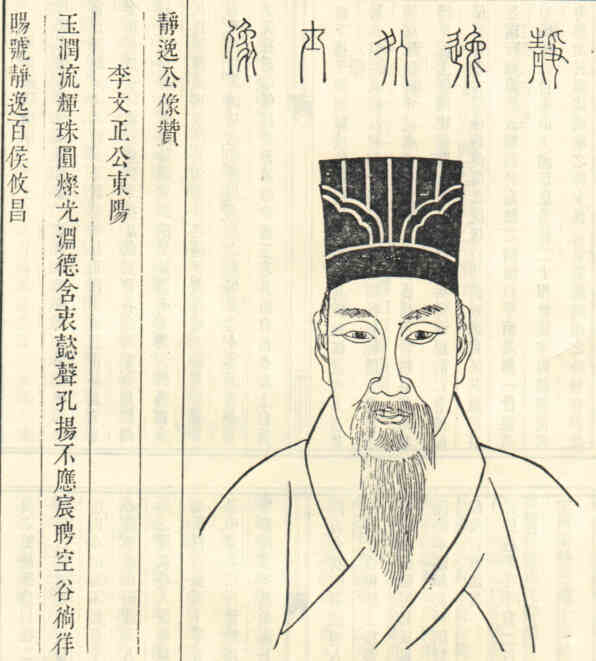 靜逸像
靜逸公像贊
李文正公東陽
玉潤流輝珠圓燦光淵德含衷懿聲孔揚不應宸聘空谷徜徉
賜號靜逸百侯攸昌